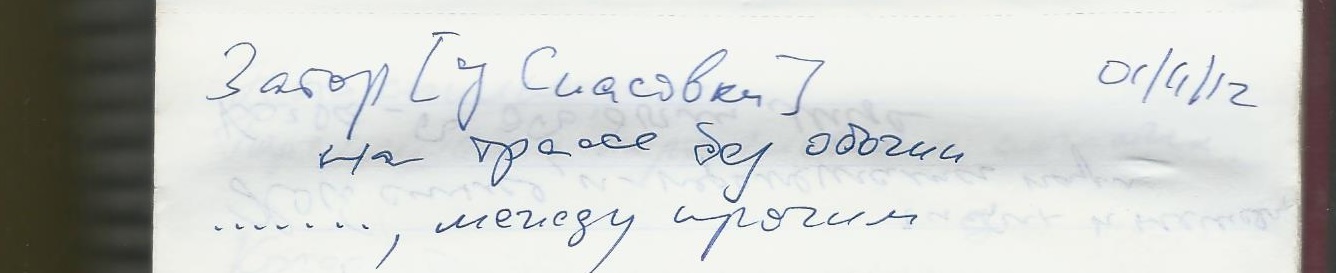 Затор [у Спасовки] 01/11/12
на трассе без обочин
........, между прочим